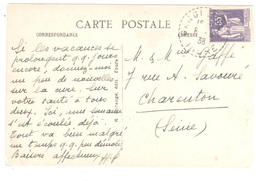 CARTE POSTALE
CORRESPONDANCE
Si les vacances se
prolongent q.q. jours
encore, donnez-moi
un peu de nouvelles
sur la cure, sur
votre santé à tous
deux. Ici, une semaine
s'est écoulée déjà.
Tout va bien malgré
un temps q.q. peu
Baisers affectueux
M. & Mme
7 rue A. Savouré
Charenton
(Seine)